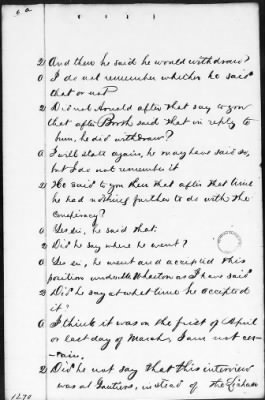 6 a
Q And then he said he would withdraw?
A I do not remember whether he said
that or not
Q Did not Arnold after that say to you
that after Booth said that in reply to
him, he did withdraw?
A I will state again, he may have said so,
but I do not remember it
Q He said to you then that after that time
he had nothing further to do with the
conspiracy?
A Yes sir, he said that.
Q Did he say where he went?
A Yes sir, he went and accepted this
position under Wharton as I have said
Q Did he say at what time he accepted
it?
A I think it was on the first of April
or last day of March, I am not cer-
-tain.
Q Did he not say that this interview
was at Gautiers, instead of the